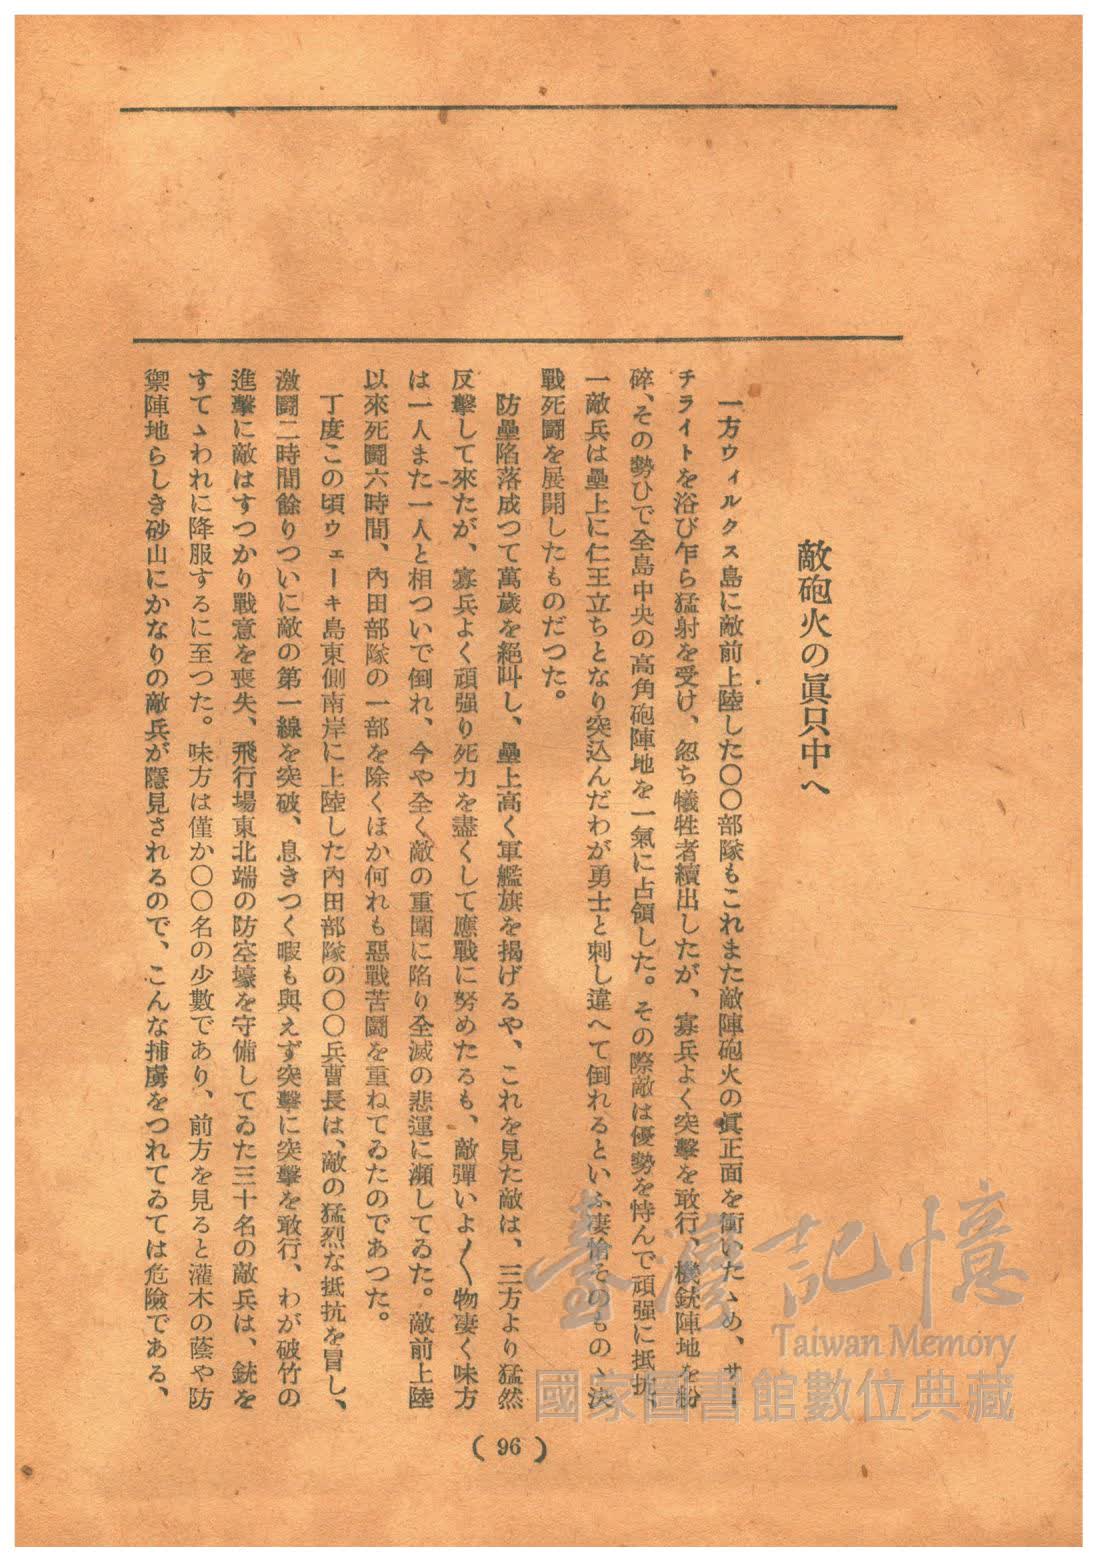 敵砲火の眞只中へ
一方ウィルクス島に敵前上陸した〇〇部隊もこれまた敵陣砲火の眞正面を衝いたゝめ、サー
チライトを浴び乍ら猛射を受け、忽ち犠牲者續出したが、寡兵よく突擊を敢行、機銃陣地を粉
碎、その勢ひで全島中央の高角砲陣地を一氣に占領した。その際敵は優勢を恃んで頑强に抵抗、
一敵兵は壘上に仁王立ちとなり突込んだわが勇士と刺し違へて倒れるといふ凄愴そのものゝ決
戰死鬪を展開したものだつた。
防壘陷落成つて萬歲を絕叫し、壘上高く軍艦旗を揭げるや、これを見た敵は、三方より猛然
反擊して來たが、寡兵よく頑强り死力を盡くして應戰に努めたるも、敵彈いよ〱物凄く味方
は一人また一人と相ついで倒れ、今や全く敵の重圍に陷り全滅の悲運に瀕してゐた。敵前上陸
以來死鬪六時間、內田部隊の一部を除くほか何れも惡戰苦鬪を重ねてゐたのであつた。
丁度この頃ウェーキ島東側南岸に上陸した內田部隊の〇〇兵曹長は、敵の猛烈な抵抗を冒し、
激鬪二時間餘りついに敵の第一線を突破、息きつく暇も與えず突擊に突擊を敢行、わが破竹の
進擊に敵はすつかり戰意を喪失、飛行場東北端の防空壕を守備してゐた三十名の敵兵は、銃を
すてゝわれに降服するに至つた。味方は僅か〇〇名の少數であり、前方を見ると灌木の蔭や防
禦陣地らしき砂山にかなりの敵兵が隱見されるので、こんな捕虜をつれてゐては危險である、
(96)
臺灣記憶
Taiwan Memory
國家圖書館數位典藏